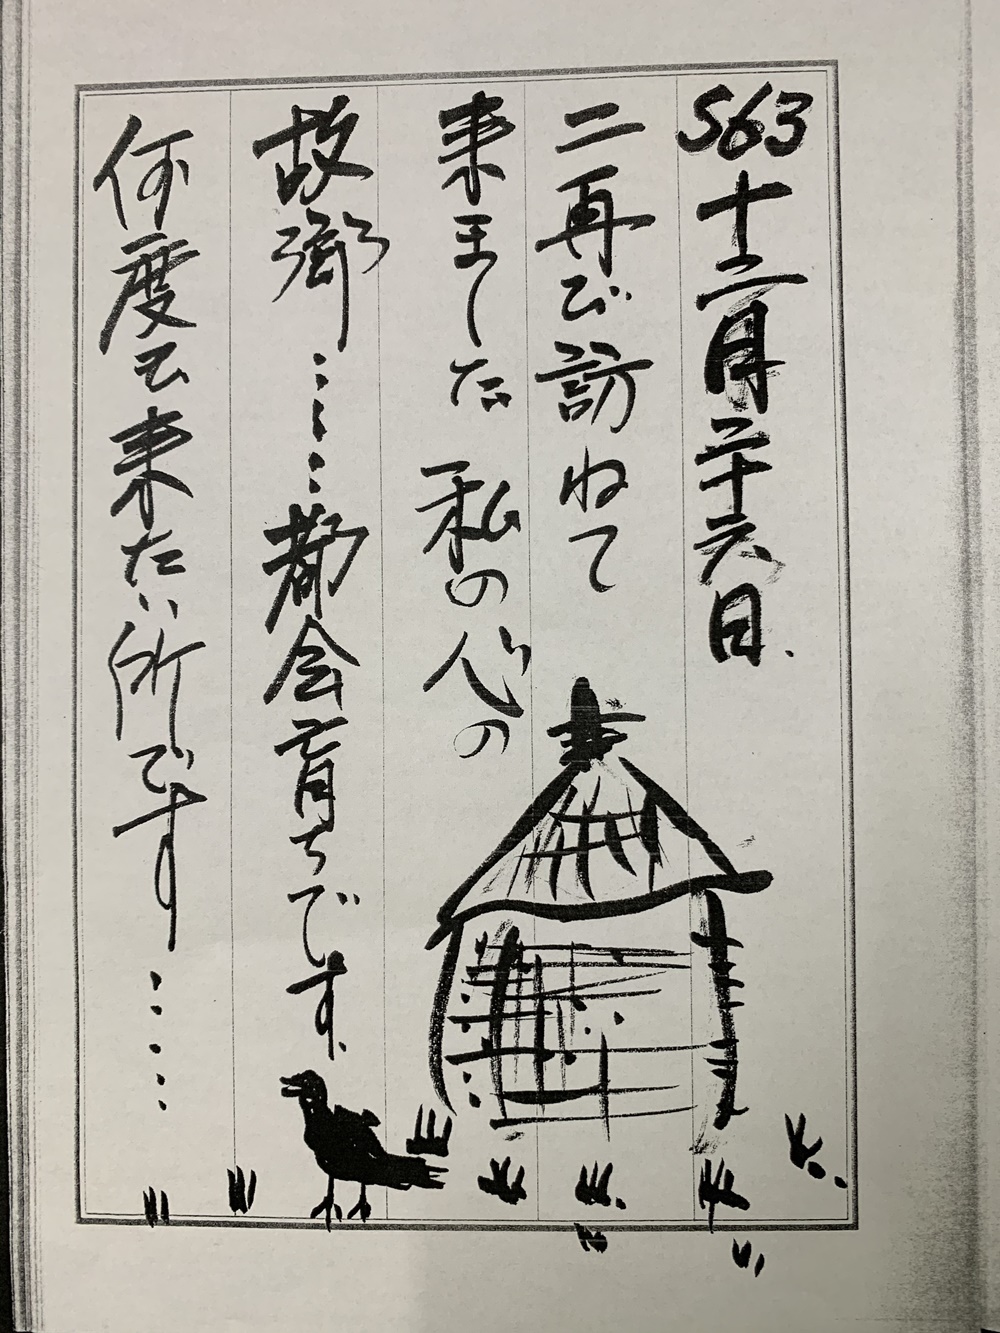 S63十二月二十六日.
二再び訪ねて
来ました 私の心の
故郷……都会育ちです.
何度も来たい所です……